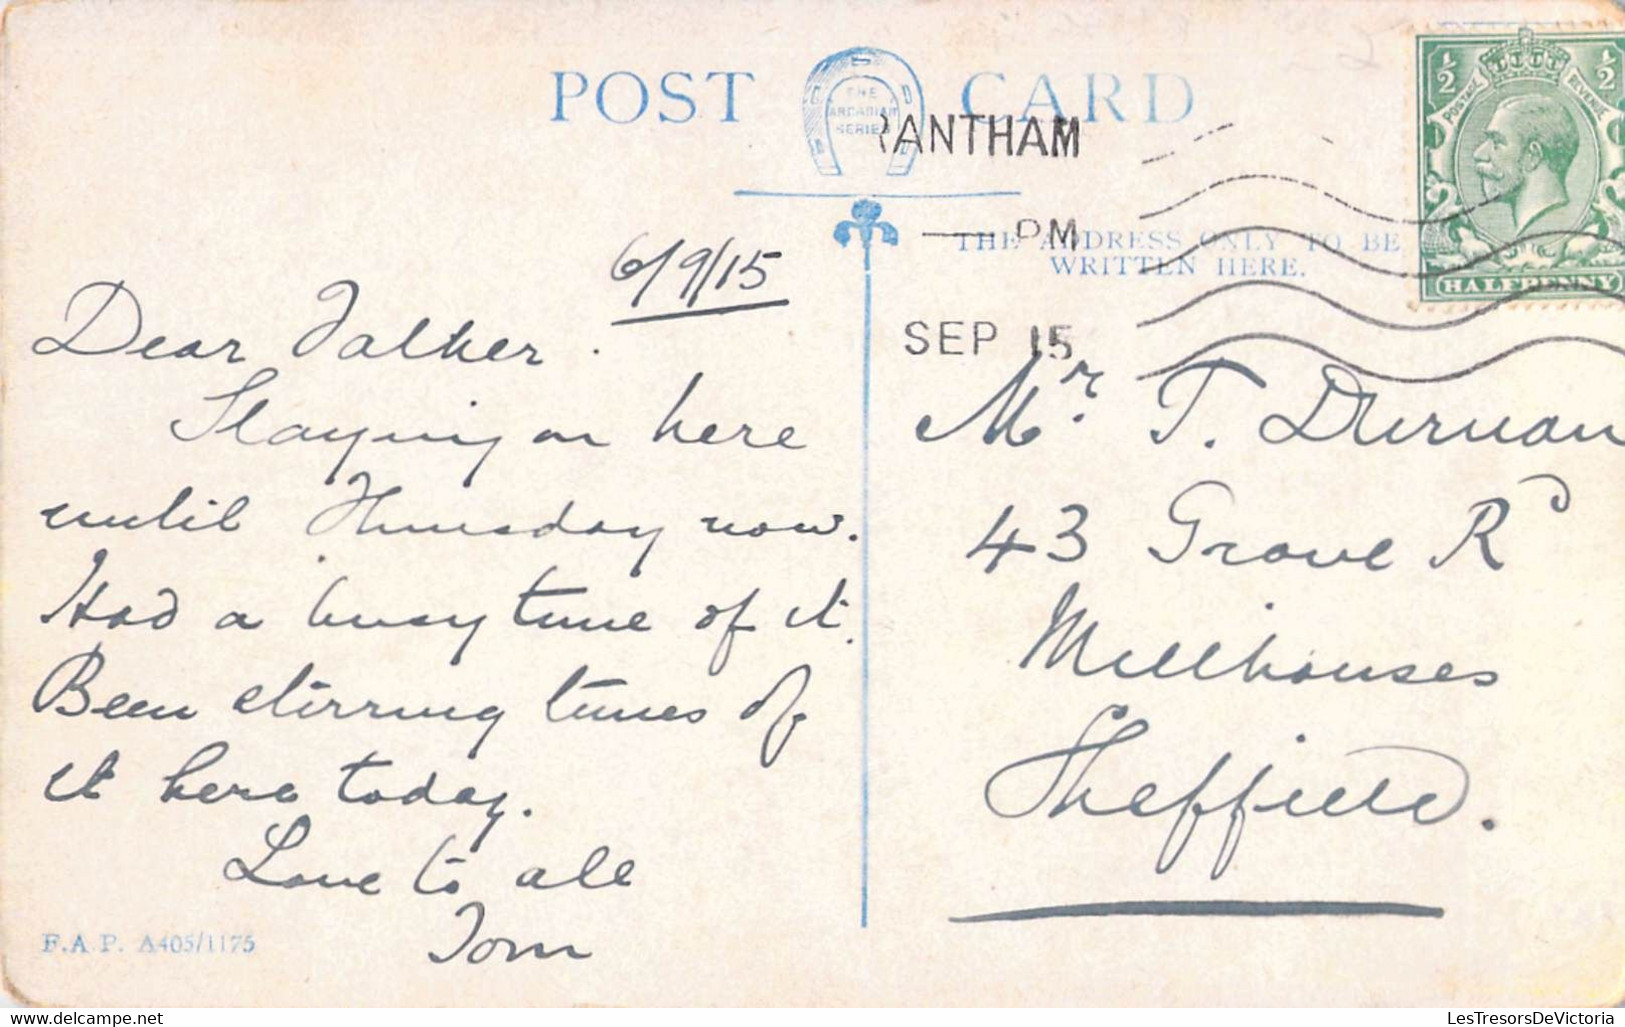 POST CARD
THE
ARCADIAN
SERIES
RANTHAM
PM
SEP 15
THE ADDRESS ONLY TO BE
WRITTEN HERE.
½ ½
POSTAGE REVENUE
HALFPENNY
6/9/15
Dear Father.
Staying on here
until Thursday now.
Had a busy time of it.
Been stirring times of
it here today.
Love to all
Tom
F.A.P. A405/1175
Mr. T.
43 Grove Rd
Millhouses
Sheffield.
LesTresorsDeVictoria.com
LesTresorsDeVictoria